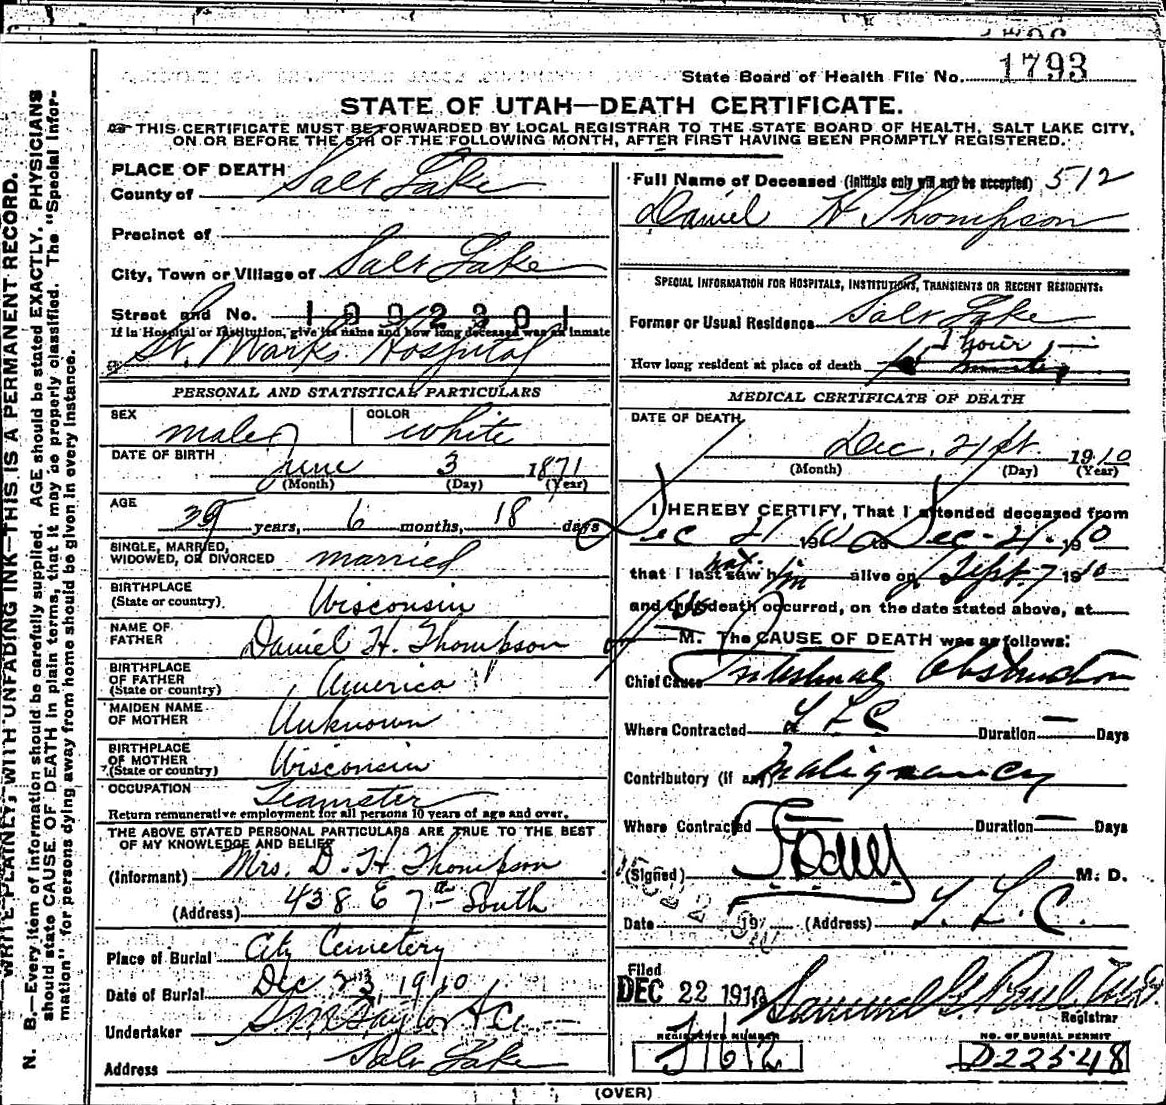 State Board of Health File No. 1793
STATE OF UTAH—DEATH CERTIFICATE.
THIS CERTIFICATE MUST BE FORWARDED BY LOCAL REGISTRAR TO THE STATE BOARD OF HEALTH, SALT LAKE CITY,
ON OR BEFORE THE 5TH OF THE FOLLOWING MONTH, AFTER FIRST HAVING BEEN PROMPTLY REGISTERED.
WRITE PLAINLY, WITH UNFADING INK—THIS IS A PERMANENT RECORD.
N. B.—Every item of information should be carefully supplied. AGE should be stated EXACTLY. PHYSICIANS
should state CAUSE OF DEATH in plain terms, that it may be properly classified. The "Special Infor-
mation" for persons dying away from home should be given in every instance.
PLACE OF DEATH
County of Salt Lake
Precinct of
City, Town or Village of Salt Lake
Street and No. 1992301
If in Hospital or Institution, give its name and how long deceased was an inmate
St. Marks Hospital
PERSONAL AND STATISTICAL PARTICULARS
SEX male COLOR white
DATE OF BIRTH June 3 1871
(Month) (Day) (Year)
AGE 39 years, 6 months, 18 days
SINGLE, MARRIED,
WIDOWED, OR DIVORCED married
BIRTHPLACE
(State or country) Wisconsin
NAME OF
FATHER Daniel H. Thompson
BIRTHPLACE
OF FATHER
(State or country) America
MAIDEN NAME
OF MOTHER Unknown
BIRTHPLACE
OF MOTHER
(State or country) Wisconsin
OCCUPATION Teamster
Return remunerative employment for all persons 10 years of age and over.
THE ABOVE STATED PERSONAL PARTICULARS ARE TRUE TO THE BEST
OF MY KNOWLEDGE AND BELIEF
(Informant) Mrs. D. H. Thompson
(Address) 438 E 7th South
Place of Burial City Cemetery
Date of Burial Dec 23, 1910
Undertaker S. M. Taylor & Co.
Address Salt Lake
Full Name of Deceased (initials only will not be accepted) 512
Daniel H Thompson
SPECIAL INFORMATION FOR HOSPITALS, INSTITUTIONS, TRANSIENTS OR RECENT RESIDENTS:
Former or Usual Residence Salt Lake
How long resident at place of death 1 hour
MEDICAL CERTIFICATE OF DEATH
DATE OF DEATH
Dec. 21st. 1910
(Month) (Day) (Year)
I HEREBY CERTIFY, That I attended deceased from
Dec 21 1910 to Dec. 21. 1910
that I last saw him alive on Sept. 7 1910
and that death occurred, on the date stated above, at
M. The CAUSE OF DEATH was as follows:
Chief Cause Intestinal Obstruction
Where Contracted S L C Duration — Days
Contributory (if any) Malignancy
Where Contracted Duration — Days
(Signed) M. D.
Date 191 (Address) S. L. C.
Filed
DEC 22 1910 Samuel G. Paul M.D.
Registrar
REGISTERED NUMBER NO. OF BURIAL PERMIT
J162 D22548
(OVER)